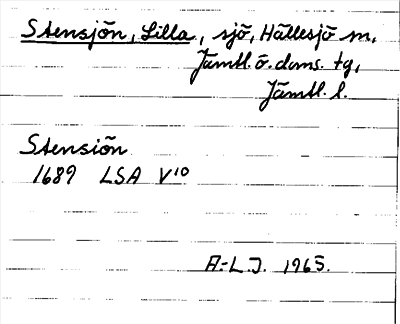 Stensjön, Lilla, sjö, Hällesjö sn,
Jämtl. ö. doms. tg,
Jämtl. l.
Stensiön
1689 LSA V¹⁰
A-L.J. 1965.